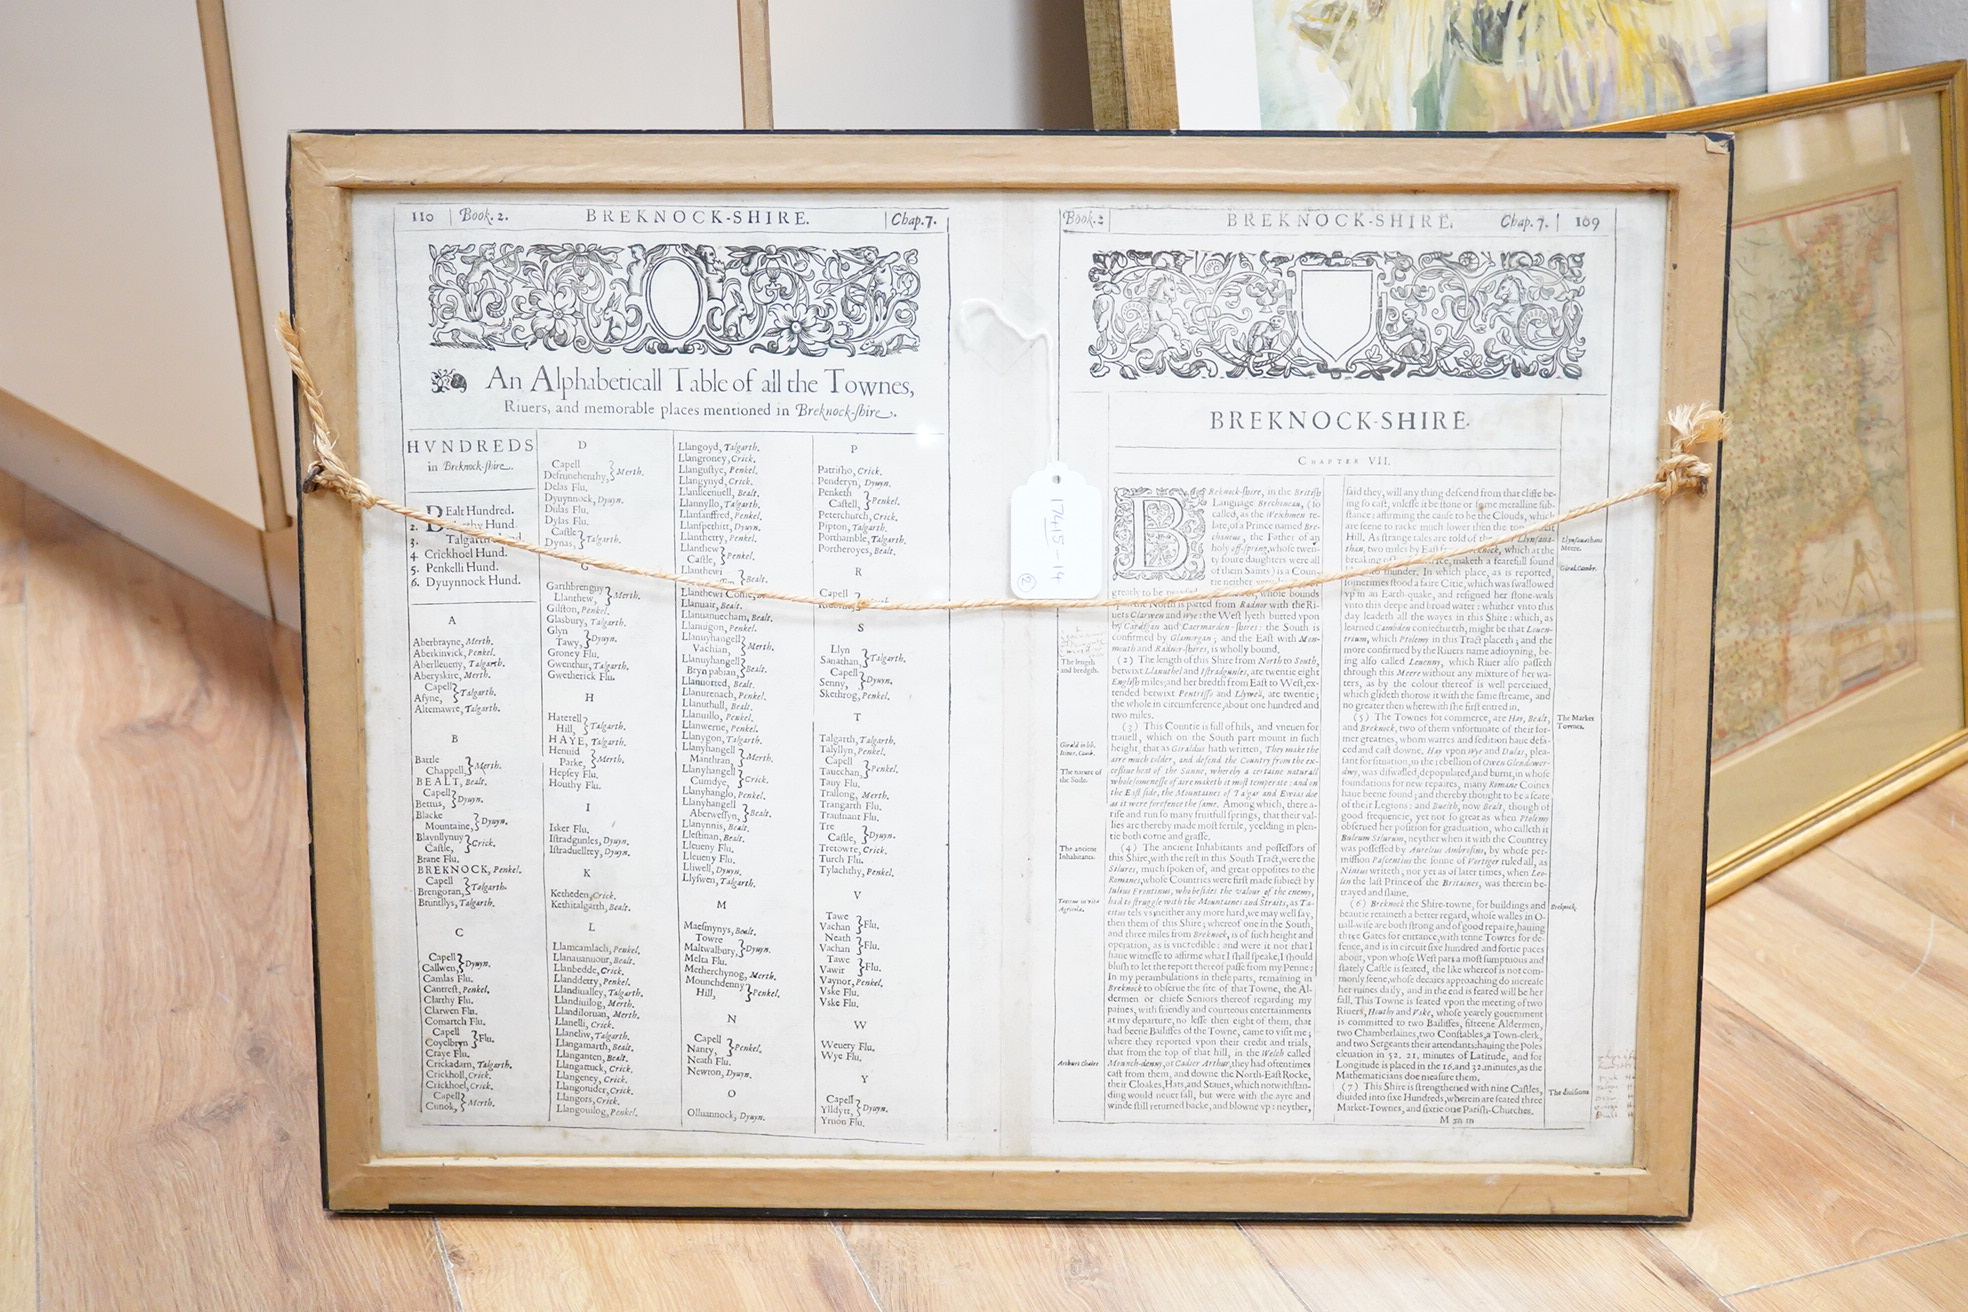 110 | Book. 2. BREKNOCK-SHIRE. | Chap. 7.
An Alphabeticall Table of all the Townes,
Riuers, and memorable places mentioned in Breknock-shire.
HVNDREDS
in Breknock-shire.
BEalt Hundred.
2.
3. Talgarth
4. Crickhoel Hund.
5. Penkelli Hund.
6. Dyuynnock Hund.
A
Aberbrayne, Merth.
Aberkinvick, Penkel.
Aberlleueny, Talgarth.
Aberyskire, Merth.
Capell
Afyne, } Talgarth.
Altemawre, Talgarth.
B
Battle
Chappell, } Merth.
BEALT, Bealt.
Capell
Bettus, } Dyuyn.
Blacke
Mountaine, } Dyuyn.
Blavnllynuy
Castle, } Crick.
Brane Flu.
BREKNOCK, Penkel.
Capell
Brengoran, } Talgarth.
Bruntllys, Talgarth.
C
Capell
Callwen, } Dyuyn.
Camlas Flu.
Cantrest, Penkel.
Clarthy Flu.
Clarwen Flu.
Comarch Flu.
Capell
Coyelbryn } Flu.
Craye Flu.
Crickadarn, Talgarth.
Crickholl, Crick.
Crickhoel, Crick.
Capell
Cunok, } Merth.
D
Capell
Defrunehenthy, } Merth.
Delas Flu.
Dyuynnock, Dyuyn.
Dulas Flu.
Dylas Flu.
Castle
Dynas, } Talgarth.
G
Garthbrenguy
Llanthew, } Merth.
Gilston, Penkel.
Glasbury, Talgarth.
Glyn
Tawy, } Dyuyn.
Groney Flu.
Gwenthur, Talgarth.
Gwetherick Flu.
H
Haterell
Hill, } Talgarth.
HAYE, Talgarth.
Henuid
Parke, } Merth.
Hepsey Flu.
Houthy Flu.
I
Isker Flu.
Istradgunles, Dyuyn.
Istraduelltey, Dyuyn.
K
Ketheden, Crick.
Kethitalgarth, Bealt.
L
Llamcamlach, Penkel.
Llanauanuour, Bealt.
Llanbedde, Crick.
Llanddetty, Penkel.
Llandiualley, Talgarth.
Llandiuilog, Merth.
Llandiloruan, Merth.
Llanelli, Crick.
Llaneliw, Talgarth.
Llangamarth, Bealt.
Llanganten, Bealt.
Llangattuck, Crick.
Llangeney, Crick.
Llangonider, Crick.
Llangors, Crick.
Llangouilog, Penkel.
Llangoyd, Talgarth.
Llangroney, Crick.
Llangustye, Penkel.
Llangynyd, Crick.
Llanlleenuell, Bealt.
Llannyllo, Talgarth.
Llansanffred, Penkel.
Llanspethitt, Dyuyn.
Llanthetty, Penkel.
Llanthew
Castle, } Penkel.
Llanthewi
} Bealt.
Llanthewi
Llanuair, Bealt.
Llanuanuecham, Bealt.
Llanuigon, Penkel.
Llanuyhangell
Vachian, } Merth.
Llanuyhangell
Bryn pabian, } Bealt.
Llanuorred, Bealt.
Llanurenach, Penkel.
Llanuthull, Bealt.
Llanuillo, Penkel.
Llanwerne, Penkel.
Llanygon, Talgarth.
Llanyhangell
Manthran, } Merth.
Llanyhangell
Cumdye, } Crick.
Llanyhanglo, Penkel.
Llanyhangell
Aberweffyn, } Bealt.
Llanynnis, Bealt.
Llestinan, Bealt.
Lleueny Flu.
Lleueny Flu.
Lliwell, Dyuyn.
Llyswen, Talgarth.
M
Maesmynys, Bealt.
Towre
Maltwalbury, } Dyuyn.
Melta Flu.
Metherchynog, Merth.
Mounchdenny
Hill, } Penkel.
N
Capell
Nanty, } Penkel.
Neath Flu.
Newton, Dyuyn.
O
Olluannock, Dyuyn.
P
Patrisho, Crick.
Penderyn, Dyuyn.
Penketh
Castell, } Penkel.
Peterchurch, Crick.
Pipton, Talgarth.
Porthamble, Talgarth.
Portheroyes, Bealt.
R
Capell
S
Llyn
Sanathan, } Talgarth.
Capell
Senny, } Dyuyn.
Skethrog, Penkel.
T
Talgarth, Talgarth.
Talyllyn, Penkel.
Capell
Tauechan, } Penkel.
Tauy Flu.
Trallong, Merth.
Trangarth Flu.
Traufnant Flu.
Tre
Castle, } Dyuyn.
Tretowre, Crick.
Turch Flu.
Tylachthy, Penkel.
V
Tawe
Vachan } Flu.
Neath
Vachan } Flu.
Tawe
Vawit } Flu.
Vaynor, Penkel.
Vske Flu.
Vske Flu.
W
Weuery Flu.
Wye Flu.
Y
Capell
Ylldytt, } Dyuyn.
Yruon Flu.
17415-14
2
Book. 2 BREKNOCK-SHIRE. Chap. 7. | 109
BREKNOCK-SHIRE.
CHAPTER VII.
BReknock-shire, in the British
Language Brechineau, (so
called, as the Welchmen re-
late, of a Prince named Bre-
chanius, the Father of an
holy off-spring, whose twen-
ty foure daughters were all
of them Saints) is a Coun-
tie neither
greatly to be whose bounds
vpon the North is parted from Radnor with the Ri-
uers Clarwen and Wye: the West lyeth butted vpon
by Cardigan and Caermarden-shires: the South is
confirmed by Glamorgan; and the East with Mon-
mouth and Radnor-shires, is wholly bound.
(2) The length of this Shire from North to South,
betwixt Llanuthel and Istradgunles, are twentie eight
English miles; and her bredth from East to West, ex-
tended betwixt Pentrisso and Llywell, are twentie;
the whole in circumference, about one hundred and
two miles.
(3) This Countie is full of hils, and vneuen for
trauell, which on the South part mount in such
height, that as Giraldus hath written, They make the
aire much colder, and defend the Country from the ex-
cessiue heat of the Sunne, whereby a certaine naturall
wholesomenesse of aire maketh it most temperate: and on
the East side, the Mountaines of Talgar and Ewias doe
as it were forefence the same. Among which, there a-
rise and run so many fruitfull springs, that their val-
lies are thereby made most fertile, yeelding in plen-
tie both corne and grasse.
(4) The ancient Inhabitants and possessors of
this Shire, with the rest in this South Tract, were the
Silures, much spoken of, and great opposites to the
Romanes, whose Countries were first made subiect by
Iulius Frontinus, who besides the valour of the enemy,
had to struggle with the Mountaines and Straits, as Ta-
citus tels vs; neither any more hard, we may well say,
then them of this Shire; whereof one in the South,
and three miles from Breknock, is of such height and
operation, as is vncredible: and were it not that I
haue witnesse to affirme what I shall speake, I should
blush to let the report thereof passe from my Penne:
In my perambulations in these parts, remaining in
Breknock to obserue the site of that Towne, the Al-
dermen or chiefe Seniors thereof regarding my
paines, with friendly and courteous entertainments
at my departure, no lesse then eight of them, that
had beene Bailiffes of the Towne, came to visit me;
where they reported vpon their credit and trials,
that from the top of that hill, in the Welch called
Mounch-denny, or Cadier Arthur, they had oftentimes
cast from them, and downe the North-East Rocke,
their Cloakes, Hats, and Staues, which notwithstan-
ding would neuer fall, but were with the ayre and
winde still returned backe, and blowne vp: neyther,
The length
and bredgth.
Girald in lib.
Itiner. Camb.
The nature of
the Soile.
The ancient
Inhabitants.
Tacitus in vita
Agricola.
Arthurs Chaire
said they, will any thing descend from that cliffe be-
ing so cast, vnlesse it be stone or some metalline sub-
stance: affirming the cause to be the Clouds, which
are seene to racke much lower then the top
Hill. As strange tales are told of the Llynsaua-
than, two miles by East from Breknock, which at the
breaking maketh a fearefull sound
like thunder. In which place, as is reported,
sometimes stood a faire Citie, which was swallowed
vp in an Earth-quake, and resigned her stone-wals
vnto this deepe and broad water: whither vnto this
day leadeth all the wayes in this Shire: which, as
learned Cambden coniectureth, might be that Louen-
trium, which Ptolemy in this Tract placeth; and the
more confirmed by the Riuers name adioyning, be-
ing also called Leuenny, which Riuer also passeth
through this Meere without any mixture of her wa-
ters, as by the colour thereof is well perceiued,
which glideth thorow it with the same streame, and
no greater then wherewith she first entred in.
(5) The Townes for commerce, are Hay, Bealt,
and Breknock, two of them vnfortunate of their for-
mer greatnes, whom warres and sedition haue defa-
ced and cast downe. Hay vpon Wye and Dulas, plea-
sant for situation, in the rebellion of Owen Glendower-
dwy, was diswalled, depopulated, and burnt, in whose
foundations for new repaires, many Romane Coines
haue beene found; and thereby thought to be a seate
of their Legions: and Buelth, now Bealt, though of
good frequencie, yet not so great as when Ptolemy
obserued her position for graduation, who calleth it
Bullæum Silurum, neyther when it with the Countrey
was possessed by Aurelius Ambrosius, by whose per-
mission Pascentius the sonne of Vortiger ruled all, as
Ninius writeth; nor yet as of later times, when Leo-
lin the last Prince of the Britaines, was therein be-
trayed and slaine.
(6) Breknock the Shire-towne, for buildings and
beautie retaineth a better regard, whose walles in O-
uall-wise are both strong and of good repaire, hauing
three Gates for entrance, with tenne Towres for de-
fence, and is in circuit sixe hundred and fortie paces
about, vpon whose West part a most sumptuous and
stately Castle is seated, the like whereof is not com-
monly seene, whose decaies approching do increase
her ruines daily, and in the end is feared will be her
fall. This Towne is seated vpon the meeting of two
Riuers, Houthy and Vske, whose yearely gouernment
is committed to two Bailiffes, fifteene Aldermen,
two Chamberlaines, two Constables, a Town-clerk,
and two Sergeants their attendants: hauing the Poles
eleuation in 52. 21. minutes of Latitude, and for
Longitude is placed in the 16. and 32. minutes, as the
Mathematicians doe measure them.
(7) This Shire is strengthened with nine Castles,
diuided into sixe Hundreds, wherein are seated three
Market-Townes, and sixtie one Parish-Churches.
M m m
Llynsauathans
Meere.
Girald. Cambr.
The Market
Townes.
Breknock.
The diuisions